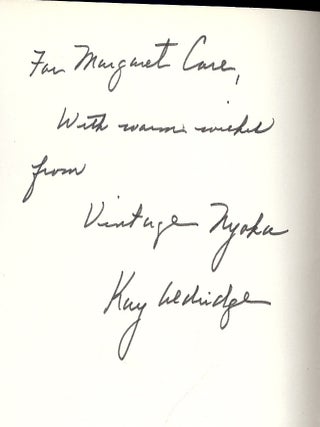 For Margaret Care,
With warm wishes
from
Vintage Nyoka
Kay Aldridge